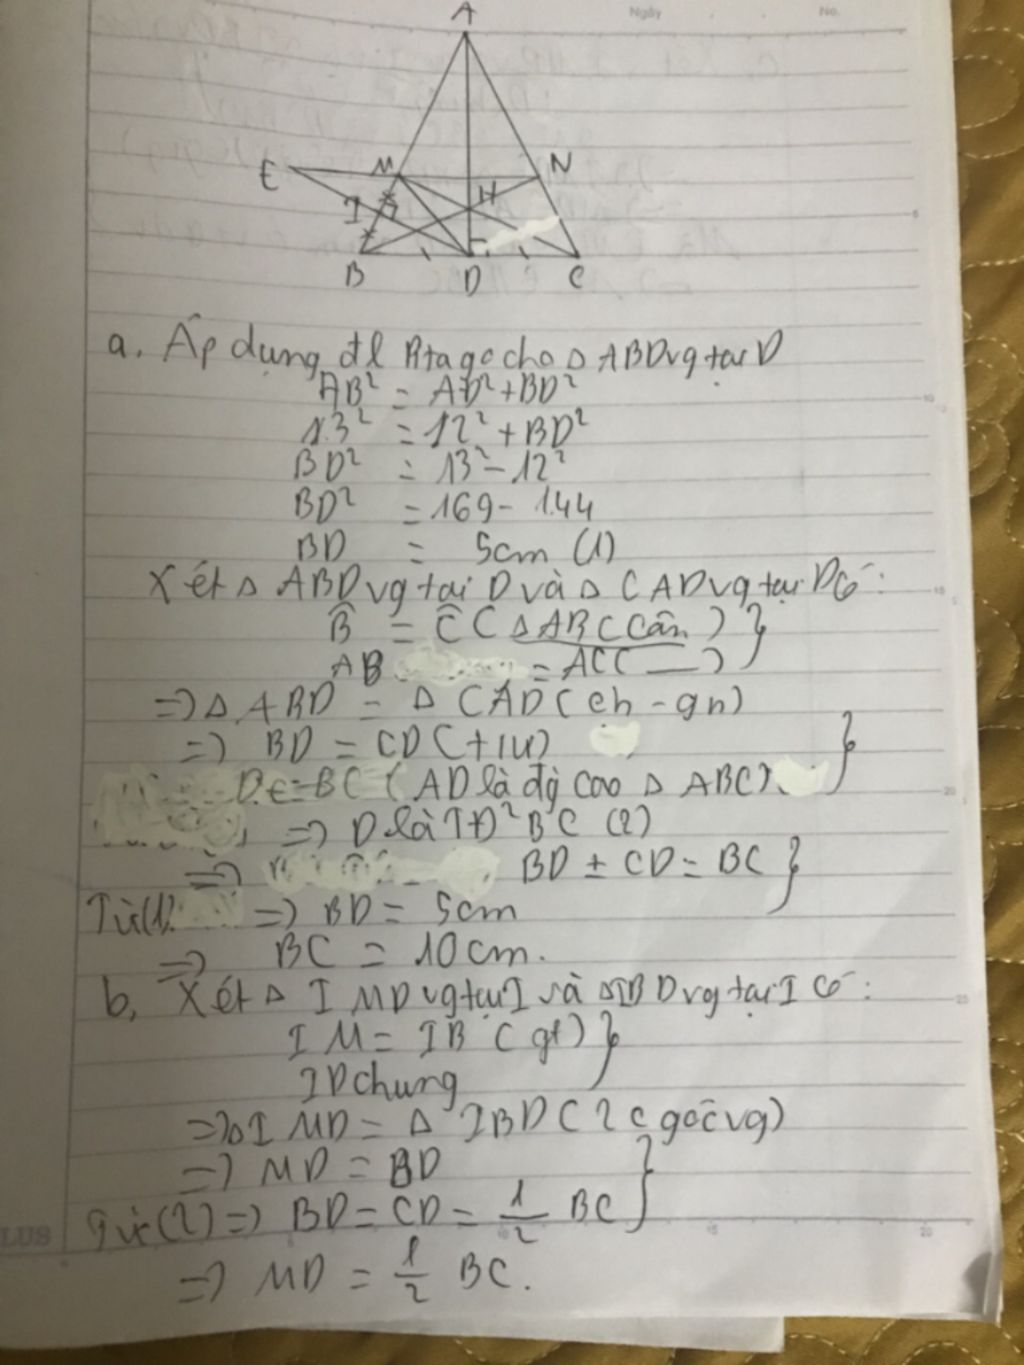 Ngày No.
A
E M N
I H
B D C
a. Áp dụng đl Pitago cho Δ ABD vg tại D
AB² = AD² + BD²
13² = 12² + BD²
BD² = 13² - 12²
BD² = 169 - 144
BD = 5cm (1)
Xét Δ ABD vg tại D và Δ CAD vg tại D có:
B̂ = Ĉ ( Δ ABC cân ) }
AB = AC ( — )
=> Δ ABD = Δ CAD ( ch - gn )
=> BD = CD ( 2 t/ứ )
D∈BC ( AD là đg cao Δ ABC ) }
=> D là TĐ² BC (2)
=> BD ± CD = BC }
Từ (1) => BD = 5cm
=> BC = 10 cm.
b, Xét Δ IMD vg tại I và ΔIBD vg tại I có:
IM = IB ( gt ) }
ID chung
=> Δ IMD = Δ IBD ( 2 c góc vg )
=> MD = BD
Từ (2) => BD = CD = 1/2 BC }
=> MD = 1/2 BC.
LUS